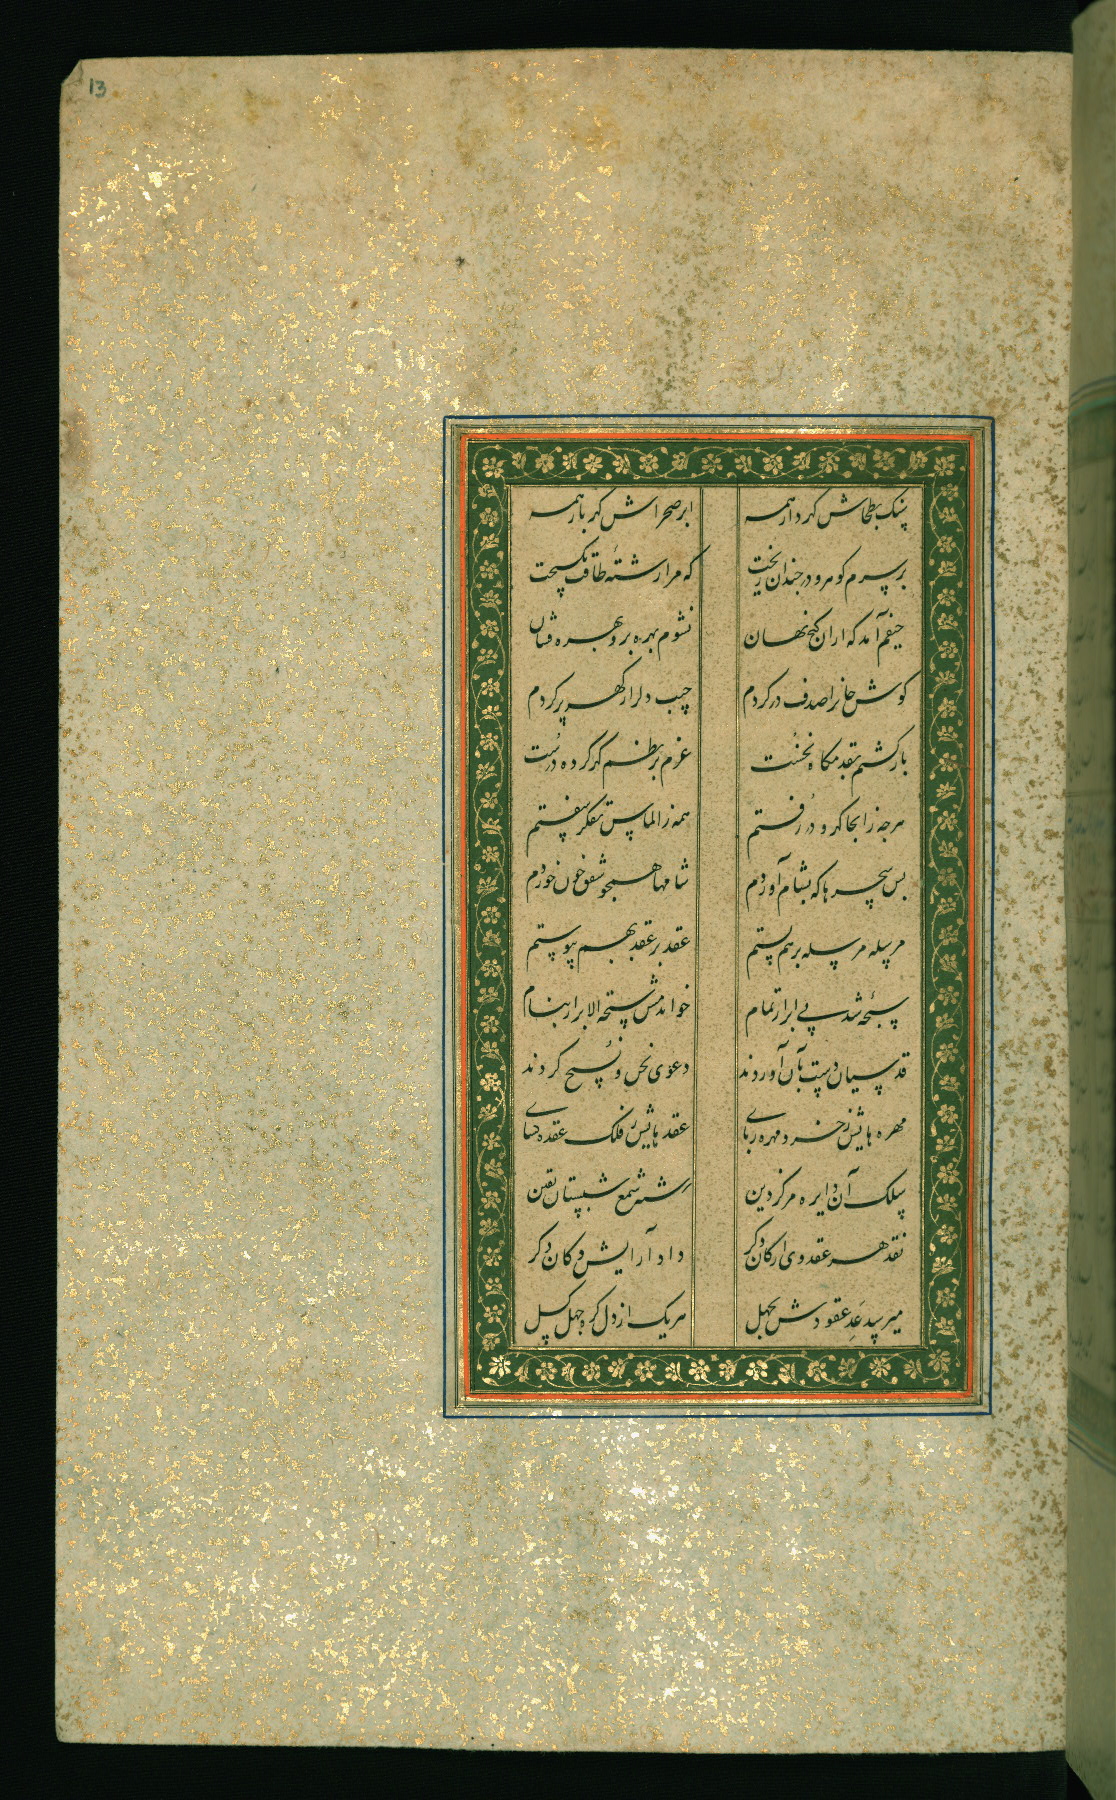 13
سنک بطحاش کهر دار همه ابر صحراش کهر بار همه
بر سرم کوهر و در چندان ریخت که مرا رشتهٔ طاقت بکسیخت
حیفم آمد که ازان کنج نهان نشوم بهره بر و بهره فشان
کوش جانرا صدف در کردم جیب دلرا ز کهر پر کردم
باز کشتم بقدمکاه نخست عزم بر نظم کهر کرده درست
هرجه زانجا کهر و در رفتم همه ز الماس تفکر سفتم
بس سحرها که بشام آوردم شامها همچو شفق خون خوردم
مرسله مرسله برهم بستم عقد بر عقد بهم پیوستم
سبحهٔ شد پی ابرار تمام خواندمش سبحة الابرار بنام
قدسیان دست بآن آوردند دعوی نحن و نسبح کردند
مهره هایش ز خرد مهره ربای عقد هایش ز فلک عقده کشای
سلک آن دایره مرکز دین رشته شمع شبستان یقین
نقد هر عقد وی از کان دکر داد آرایش دکان دکر
میرسد عد عقودش بجهل هریک از دل کره جهل کسل